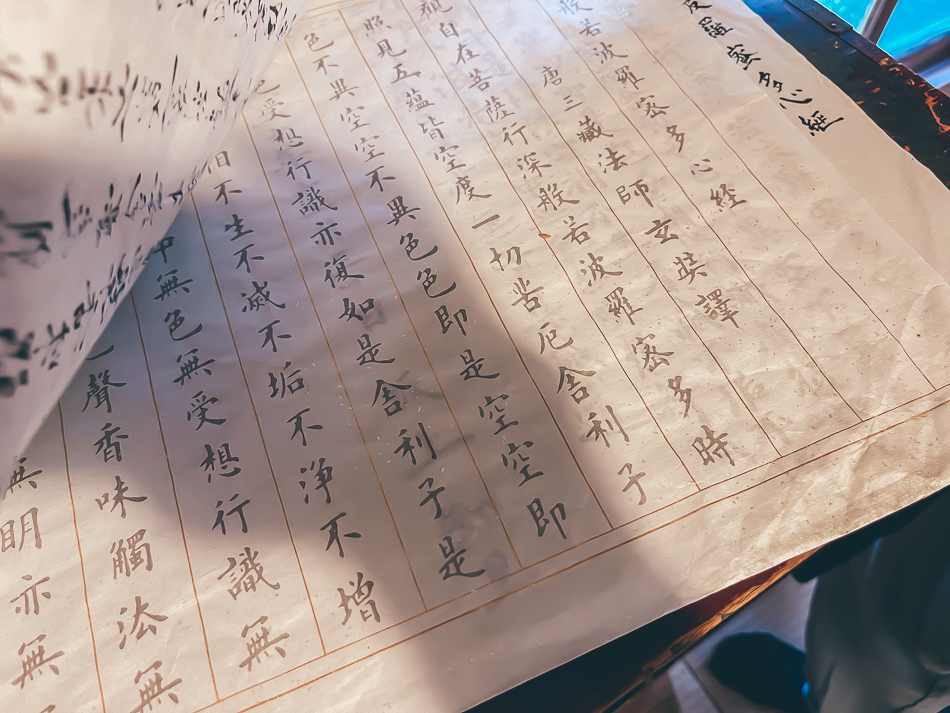 波羅蜜多心經
般若波羅密多心経
唐三藏法師玄奘譯
觀自在菩薩行深般若波羅密多時
照見五蘊皆空度一切苦厄舍利子
色不異空空不異色色即是空空即
受想行識亦復如是舍利子是
相不生不滅不垢不浄不增
中無色無受想行識無
色聲香味觸法無
無明亦無